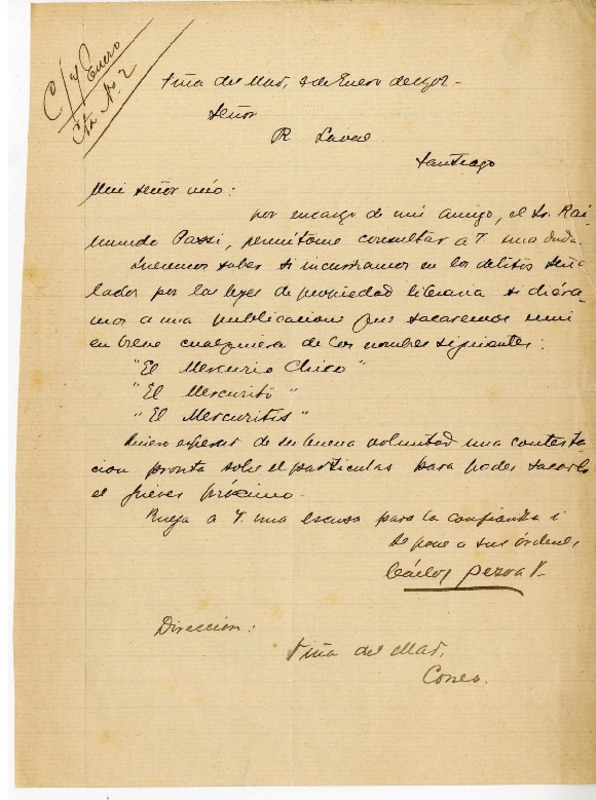 C/ 4 Enero
Cta No. 2
Viña del Mar, de Enero de 1902 -
Señor
R. Laval
Santiago
Mui señor mío:
por encargo de mi amigo, el Sr. Rai-
mundo Pazzi, permítome consultar a V. una duda.
Queremos saber si incurriamos en los delitos seña
lados por las leyes de propiedad literaria si diéra-
mos a una publicacion que sacaremos mui
en breve cualquiera de los nombres siguientes:
"El Mercurio Chico"
"El Mercurito"
"El Mercuritis"
Quiero esperar de su buena voluntad una contesta
cion pronta sobre el particular para poder sacarlo
el jueves próximo.
Ruega a V. una escusa para la confianza i
se pone a sus órdenes
Cárlos Pezoa V.
Direccion:
Viña del Mar,
Correo.